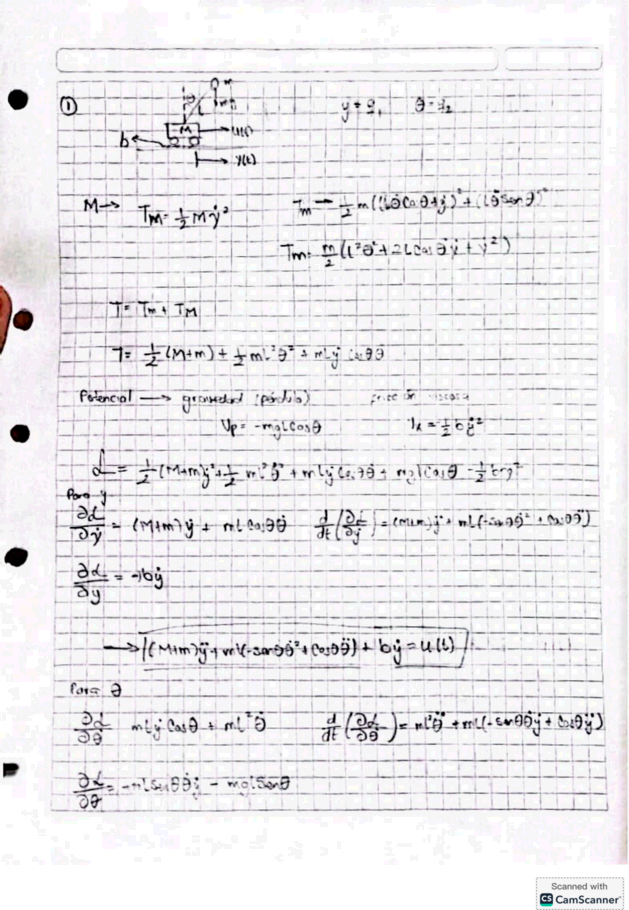 ①
m
θ
l
M
u(t)
b
y(t)
y = q₁   θ = q₂
M → T_M = ½ M ẏ²
T_m → ½ m ((lθ̇ Cosθ + ẏ)² + (lθ̇ Senθ)²
T_m = m/2 (l²θ̇² + 2l Cosθ θ̇ẏ + ẏ²)
T = T_m + T_M
T = ½ (M+m) + ½ ml²θ̇² + mlẏ Cosθ θ̇
Potencial → gravedad (péndulo)   fricción viscosa
Vp = -mglCosθ   = ½ bẏ²
ℒ = ½ (M+m)ẏ² + ½ ml²θ̇² + mlẏ Cosθ θ̇ + mglCosθ - ½
Para y
∂ℒ/∂ẏ = (M+m)ẏ + ml Cosθ θ̇   d/dt (∂ℒ/∂ẏ) = (M+m)ÿ + ml(-senθ θ̇² + Cosθ θ̈)
∂ℒ/∂y = -bẏ
→ (M+m)ÿ + ml(-senθ θ̇² + Cosθ θ̈) + bẏ = u(t)
Para θ
∂ℒ/∂θ̇ mlẏ Cosθ + ml²θ̇   d/dt (∂ℒ/∂θ̇) = ml²θ̈ + ml(-senθ θ̇ẏ + Cosθ ÿ)
∂ℒ/∂θ = -mlsenθ θ̇ẏ - mglSenθ
Scanned with
CS CamScanner